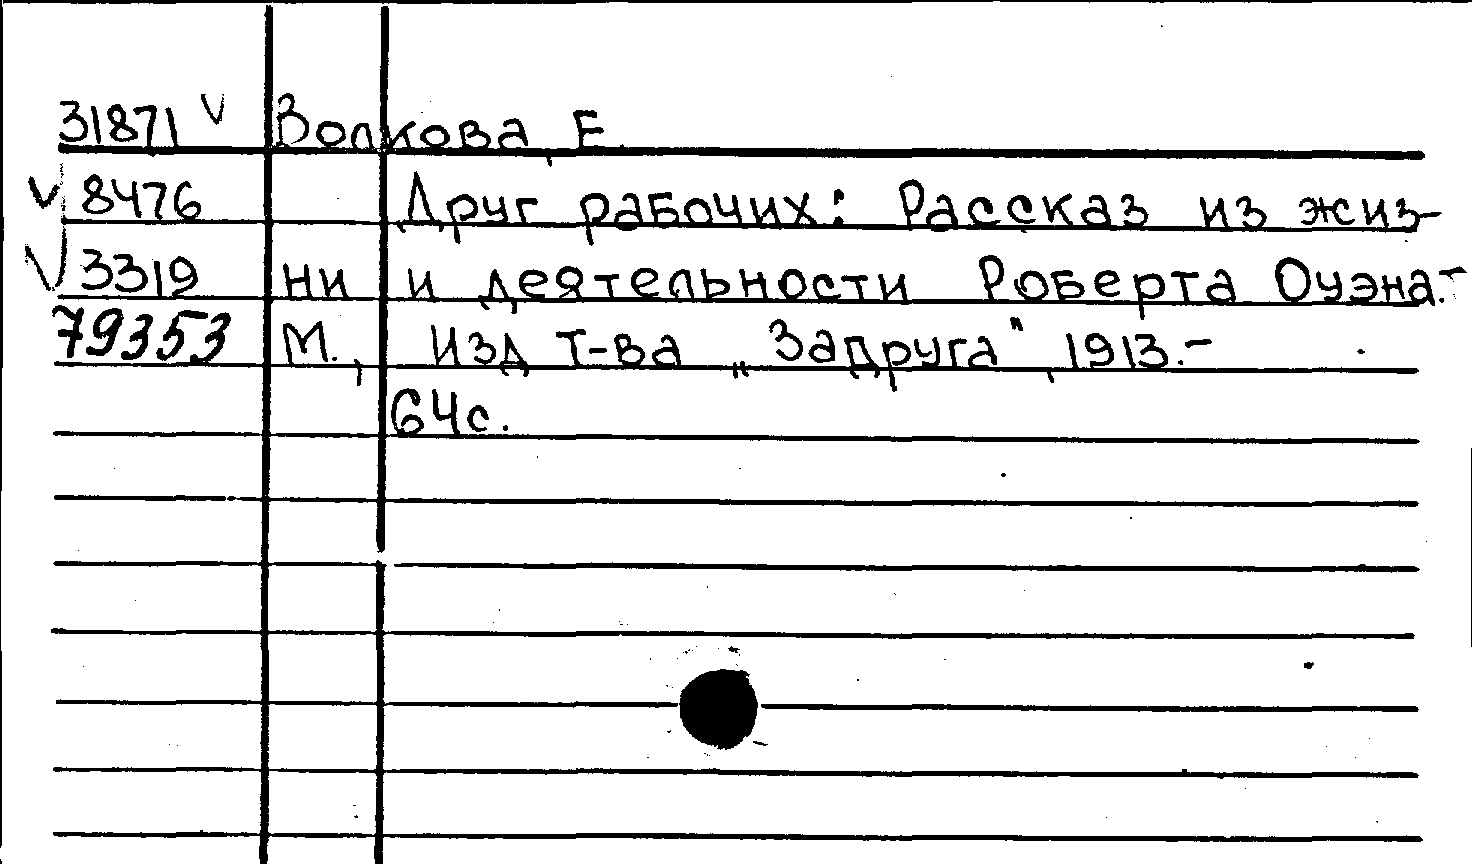 31871 v Волкова, Е.
v 8476 Друг рабочих: Рассказ из жиз-
v 3319 ни и деятельности Роберта Оуэна.-
79353 М., Изд Т-ва „Задруга", 1913.-
64с.